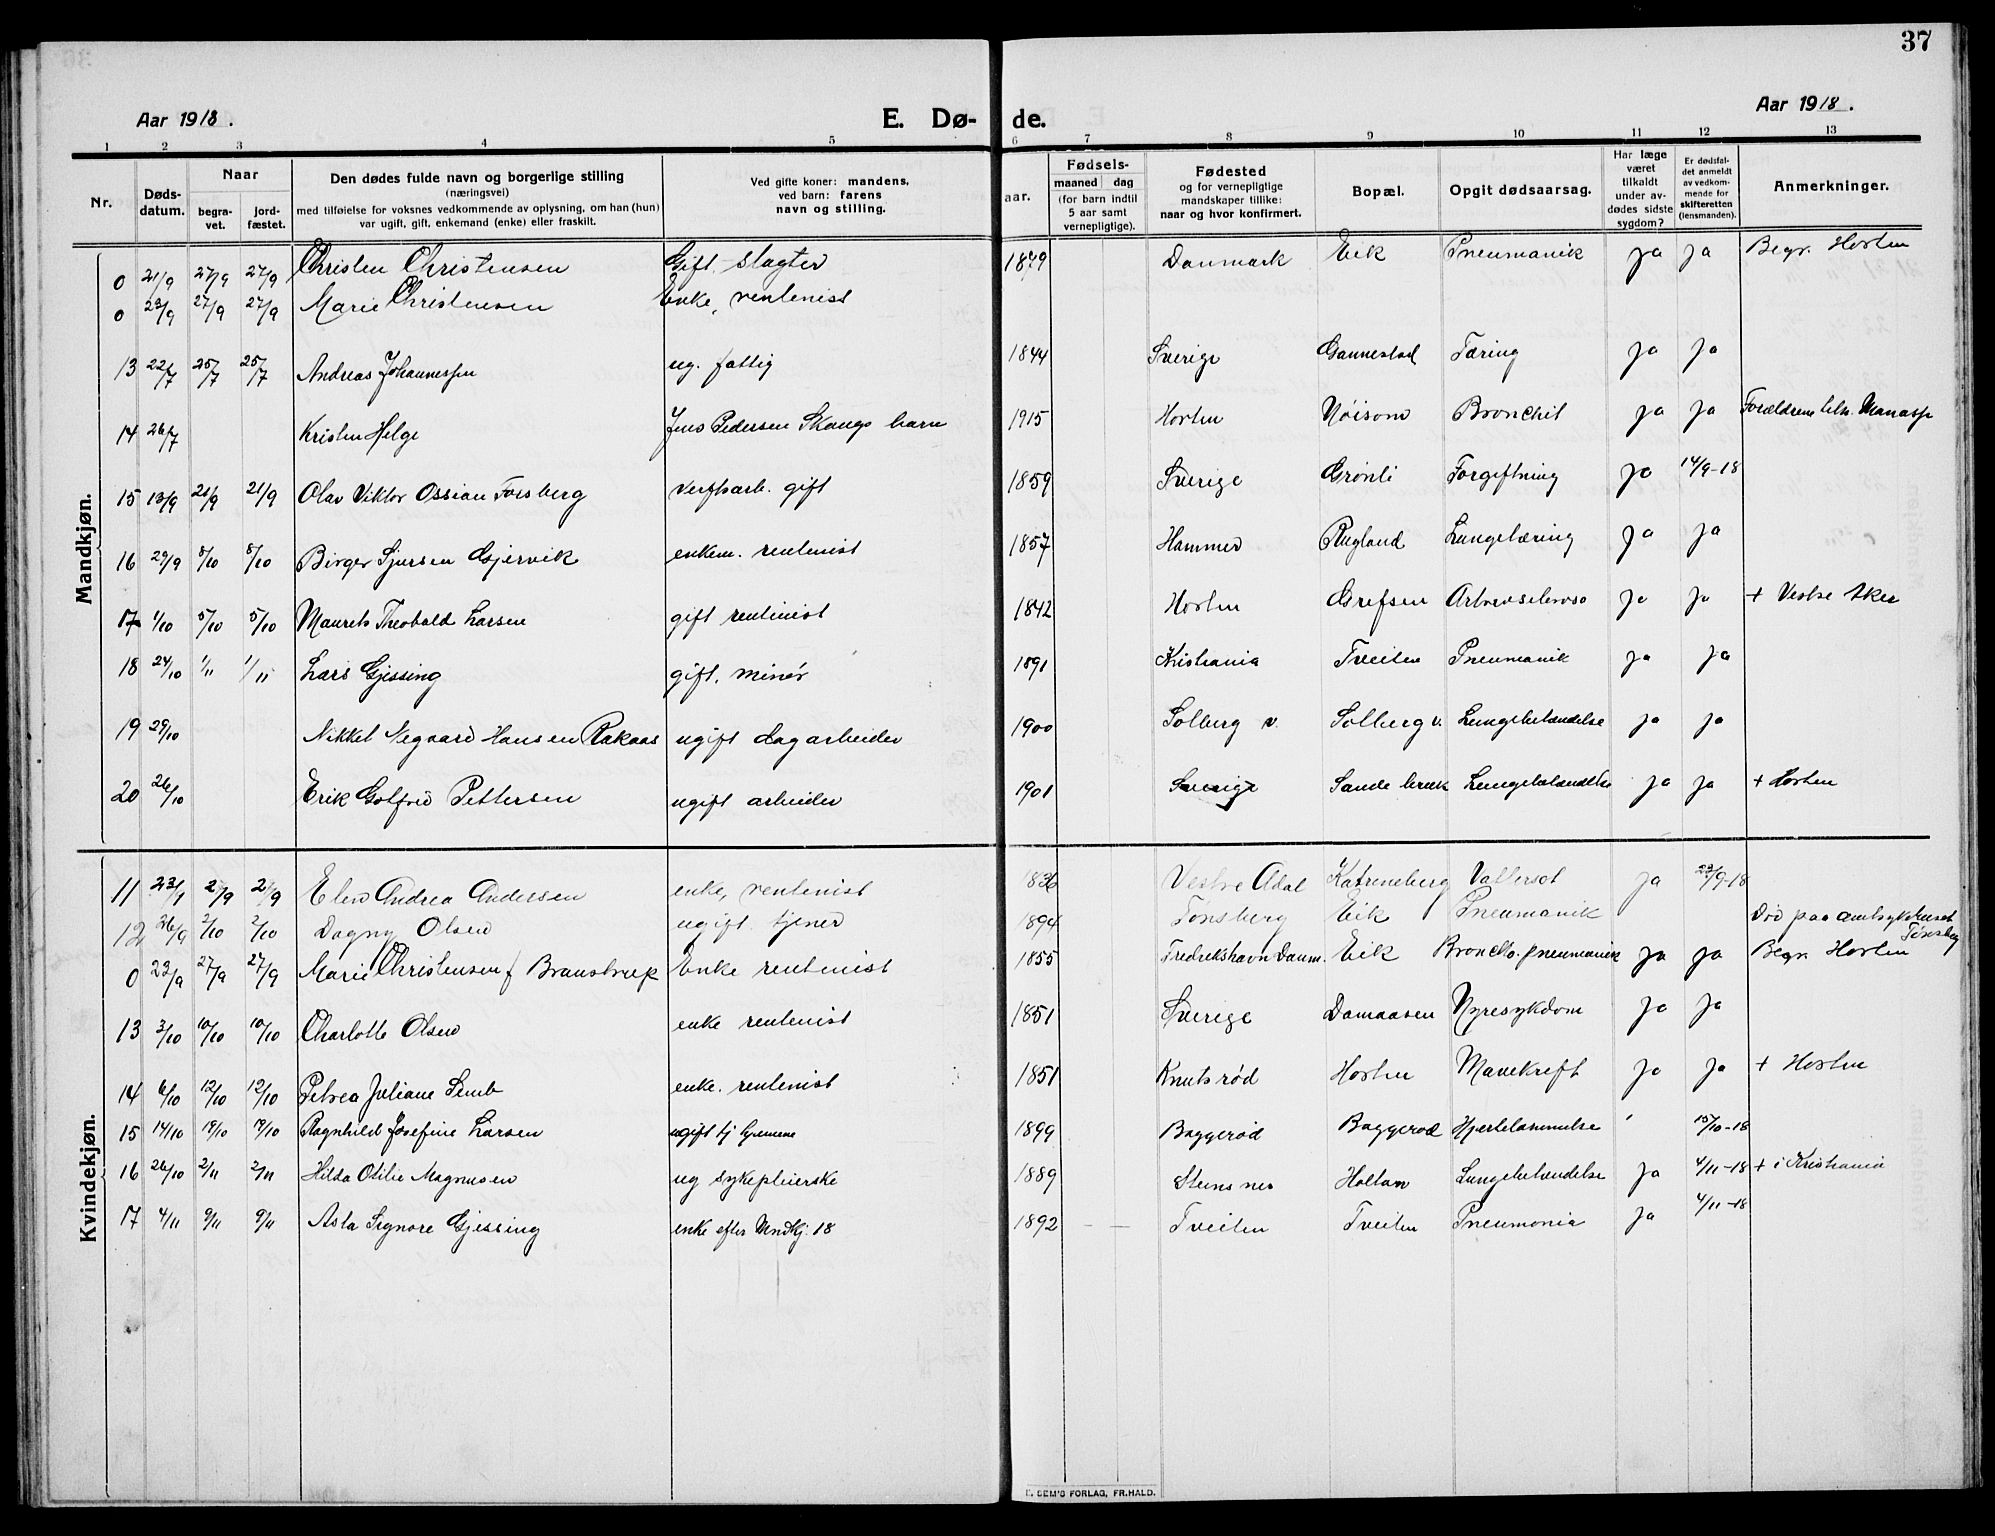 37
Aar 1918. E. Dø- de. Aar 1918.
1 2 3 4 5 6 7 8 9 10 11 12 13
Nr. Døds-datum. Naar begra-vet. jord-fæstet. Den dødes fulde navn og borgerlige stilling (næringsvei) med tilføielse for voksnes vedkommende av oplysning, om han (hun) var ugift, gift, enkemand (enke) eller fraskilt. Ved gifte koner: mandens, ved barn: farens navn og stilling. aar. Fødsels- maaned dag (for barn indtil 5 aar samt vernepligtige). Fødested og for vernepligtige mandskaper tillike: naar og hvor konfirmert. Bopæl. Opgit dødsaarsag. Har læge været tilkaldt under av-dødes sidste sygdom? Er dødsfal-det anmeldt av vedkom-mende for skifteretten (lensmanden). Anmerkninger.
Mandkjøn.
0 21/9 27/9 27/9 Christen Christensen Gift. slagter 1879 Danmark Eik Pneumanik ja ja Begr. Horten
0 23/9 27/9 27/9 Marie Christensen Enke, rentenist
13 22/7 25/7 25/7 Andreas Johannessen ug. fattig 1844 Sverige Gannestad Tæring ja ja
14 26/7 Kristen Helge Jens Pedersen Skaugs barn 1915 Horten Nøisom Bronchit ja ja Forældrene
15 13/9 21/9 21/9 Olav Viktor Ossian Forsberg verftsarb. gift 1859 Sverige Grønli Forgiftning ja 14/9-18
16 29/9 8/10 8/10 Birger Sjursen Gjervik enkem. rentenist 1857 Hammer Rugland Lungetæring ja ja
17 1/10 5/10 5/10 Maurits Theobald Larsen gift rentenist 1842 Horten Grefsen ja ja + Vestre Aker
18 24/10 1/11 1/11 Lars Gjessing gift, minør 1891 Kristiania Tveiten Pneumanik ja ja
19 29/10 Nikkel Negaard Hansen Rakaas ugift dagarbeider 1900 Solberg v. Solberg v. Lungebetændelse ja ja
20 26/10 Erik Gotfred Pettersen ugift arbeider 1901 Sverige Sande bruk Lungebetændelse ja ja + Horten
Kvindekjøn.
11 23/9 2/9 2/9 Elen Andrea Andersen enke, rentenist 1836 Vestre Adal Katreneberg Vattersot ja 23/9-18
12 26/9 2/10 2/10 Dagny Olsen ugift tjener 1894 Tønsberg Eik Pneumanik Død paa amtsykehuset Tønsberg
0 23/9 27/9 27/9 Marie Christensen f Branstrup Enke rentenist 1855 Fredrikshavn Danm. Eik Broncho. pneumanik ja ja Begr. Horten
13 3/10 10/10 10/10 Charlotte Olsen enke rentenist 1851 Sverige Damaasen Nyresykdom ja ja
14 6/10 12/10 12/10 Petrea Juliane Semb enke. rentenist 1851 Knutsrød Horten Mavekreft ja ja + Horten
15 14/10 19/10 19/10 Ragnhild Josefine Larsen ugift hjemme 1899 Baggerød Baggerød Hjertelammelse ' 15/10-18
16 26/10 2/11 2/11 Hilda Otilie Magnusen ug sykepleierske 1889 Steinsnes Holtan Lungebetændelse ja 4/11-18 + i Kristiania
17 4/11 9/11 9/11 Asta Signore Gjessing enke efter Mndkj. 18 1892 — — Tveiten Tveiten Pneumonia ja 4/11-18
SEM'S FORLAG, FR.HALD.